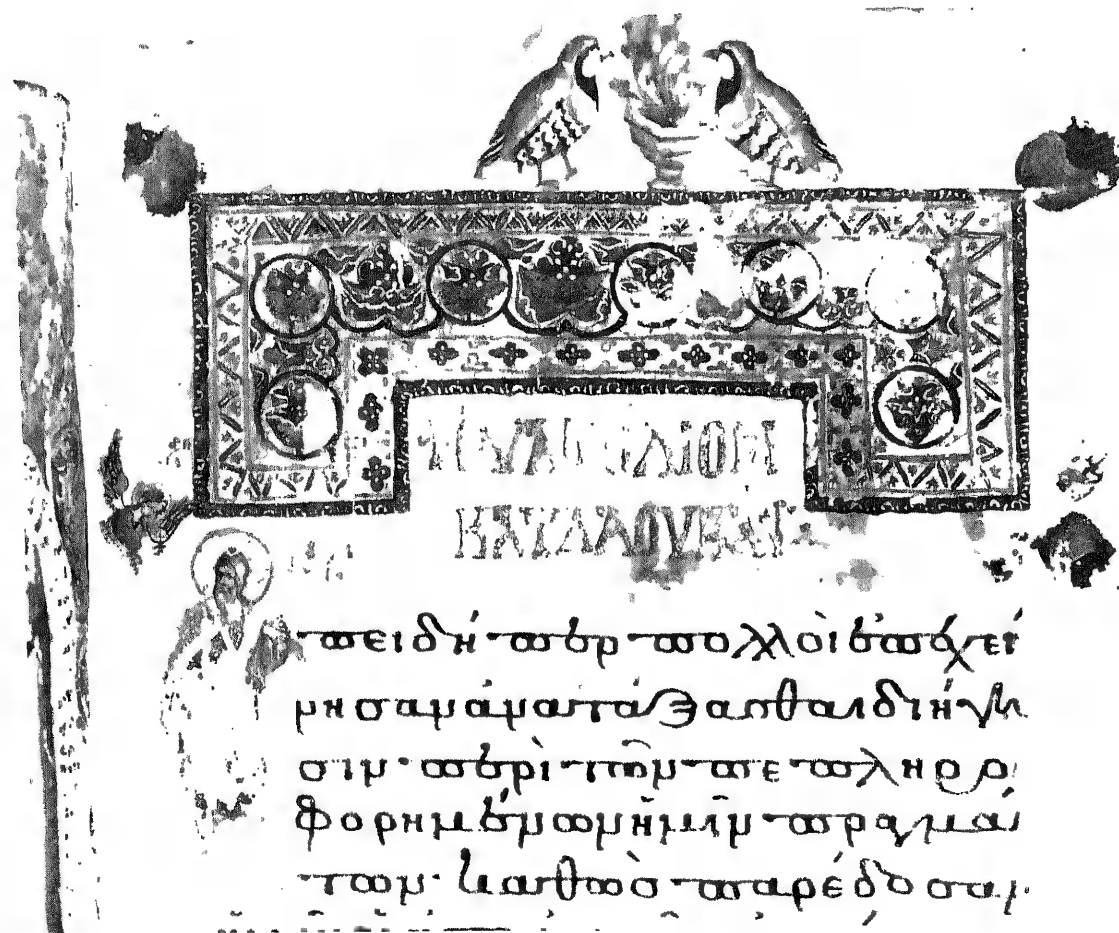 ΕΥΑΓΓΕΛΙΟΝ
ΚΑΤΑ ΛΟΥΚΑΝ
πειδή περ πολλοὶ ἐπεχεί
ρησαν ἀνατάξασθαι διήγη
σιν· περὶ τῶν πεπληρο
φορημένων ἡμῖν πραγμά
των· καθὼς παρέδοσαν